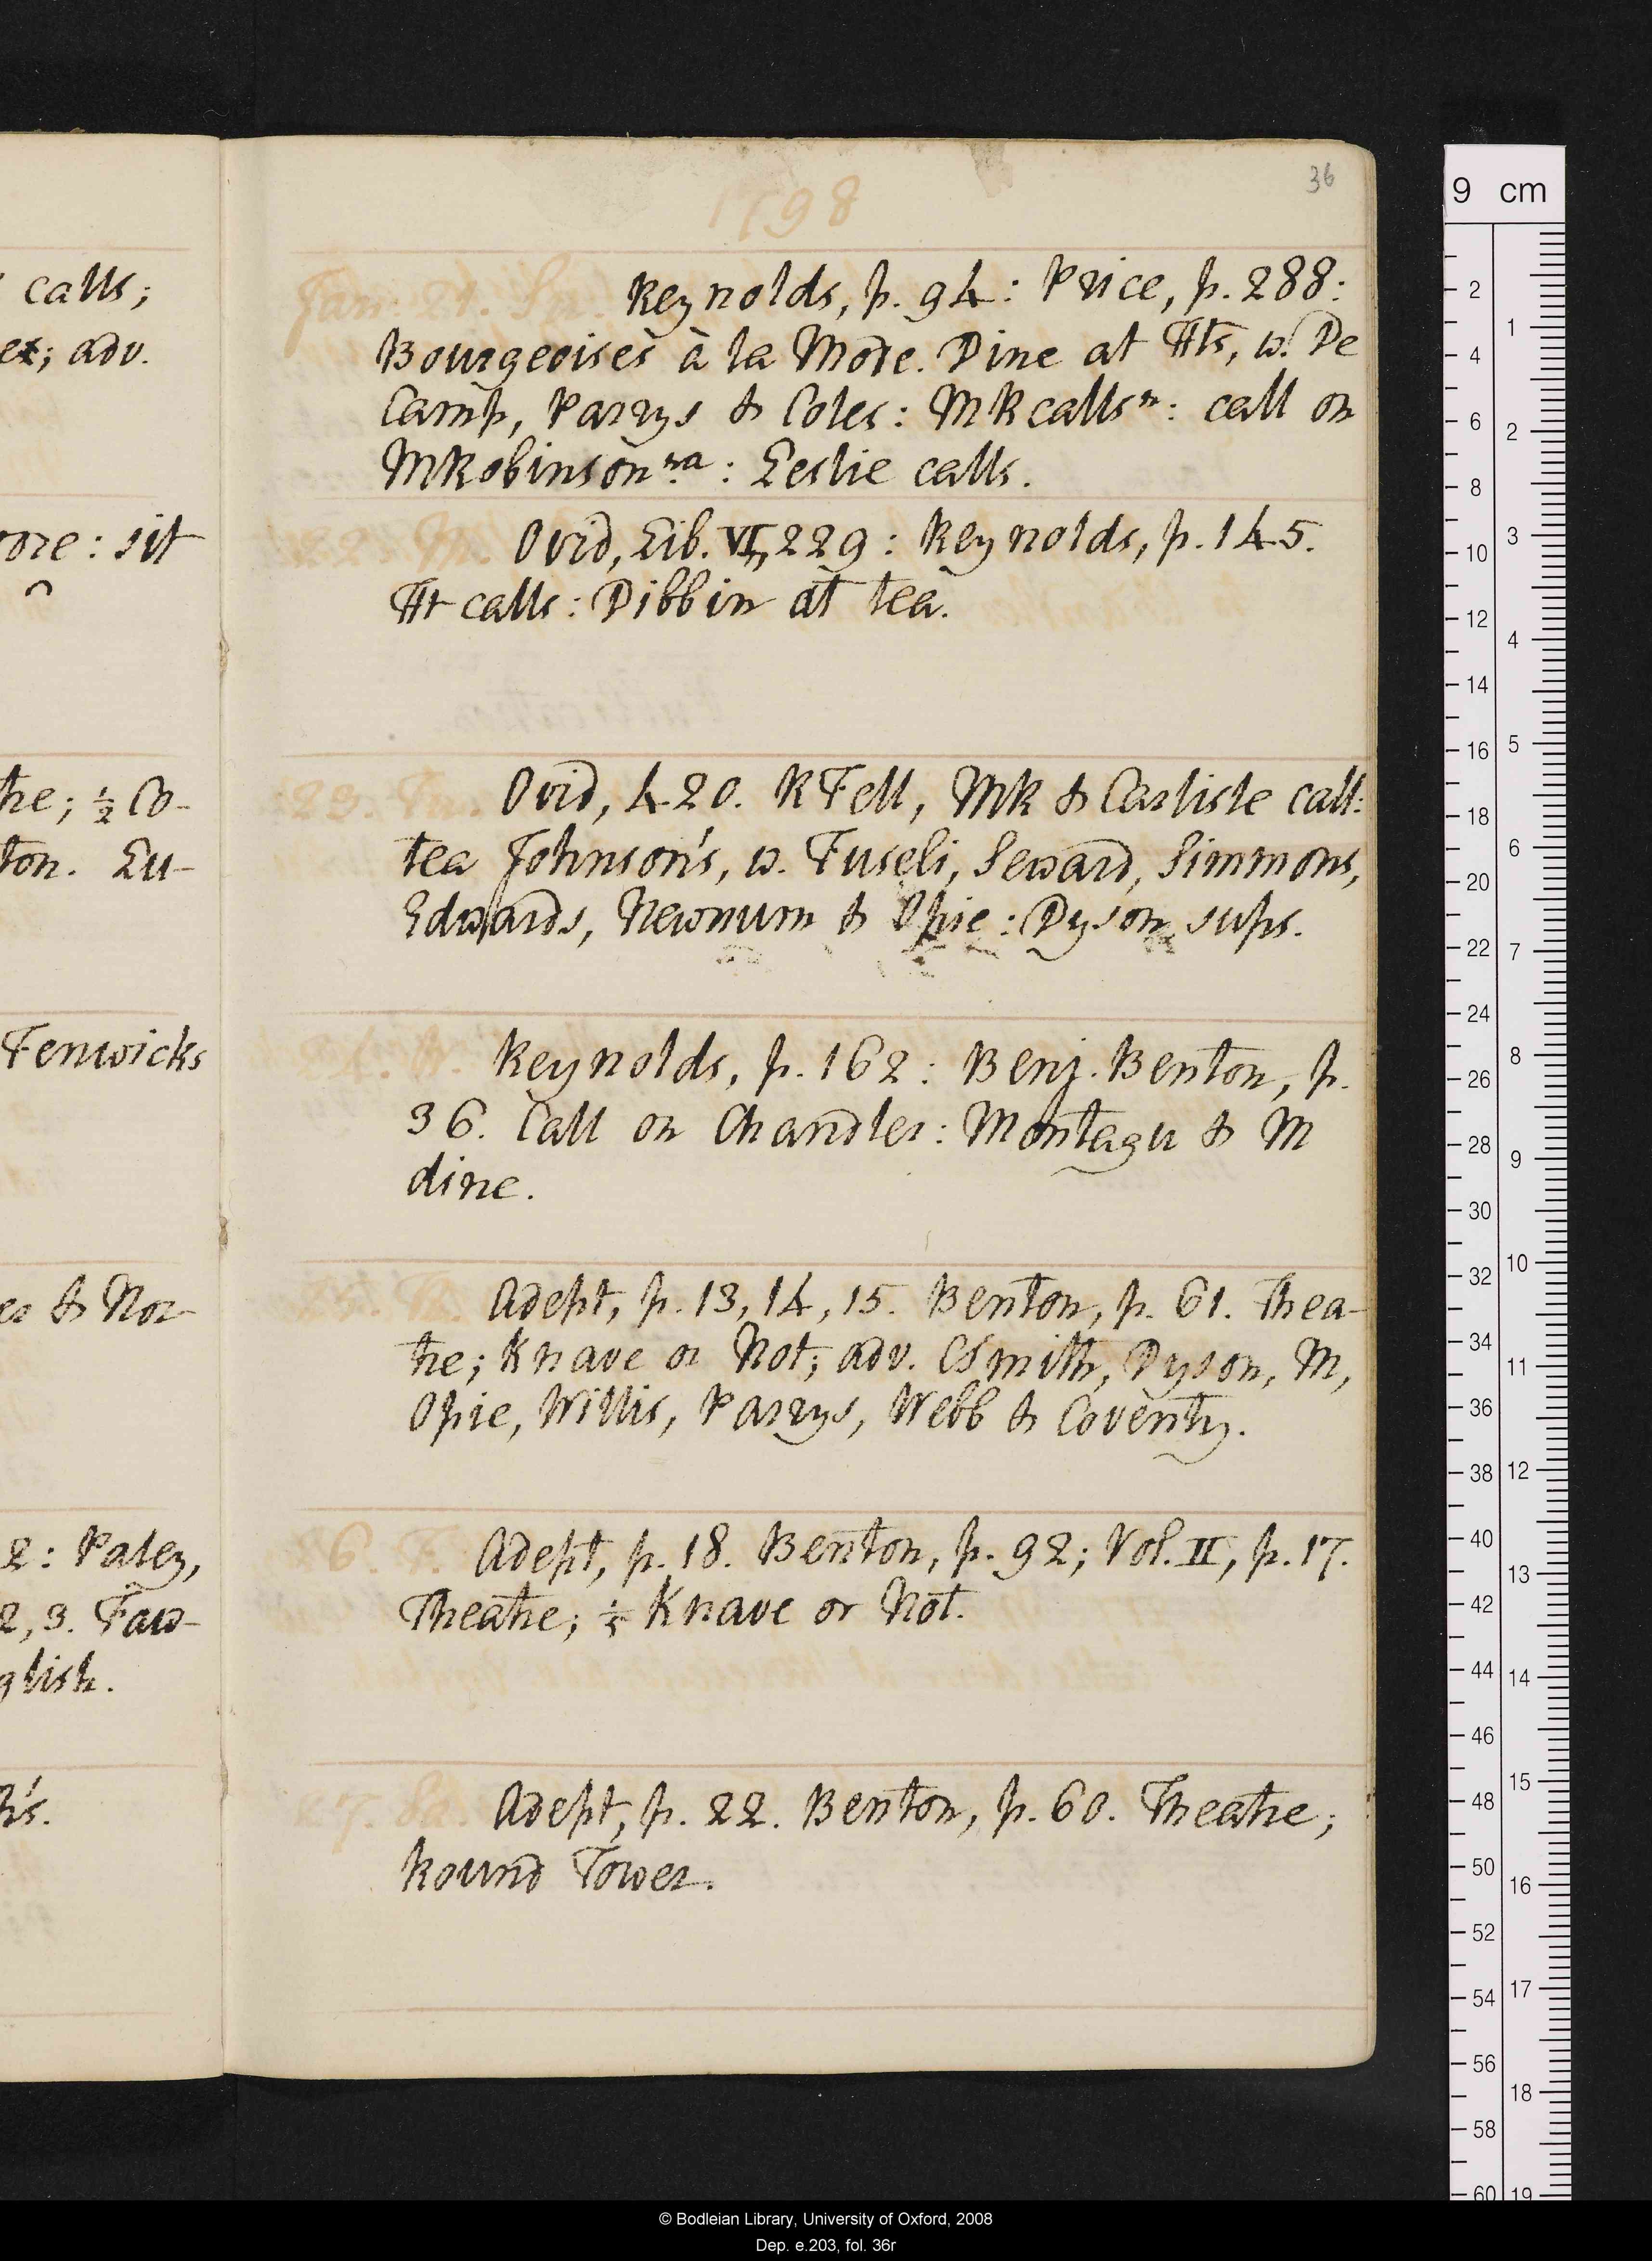 calls;
ex; adv.
ore: sit
he; ½ Co-
ton. Lu-
Fenwicks
es & Nor-
2: Paley,
2, 3. Faw-
glish.
h's.
36
1798
Jan. 21. Su. Reynolds, p. 94: Price, p. 288:
Bourgeoises à la Mode. Dine at Hts, w. De
Camp, Parrys & Coles: MR calls n: call on
MRobinson na: Leslie calls.
22. M. Ovid, Lib. VI, 229: Reynolds, p. 145.
Ht calls: Dibbin at tea.
23. Tu. Ovid, 420. RFell, MR & Carlisle call:
tea Johnson's, w. Fuseli, Seward, Simmons,
Edwards, Newnum & Opie: Dyson sups.
24. W. Reynolds, p. 162: Benj. Benton, p.
36. Call on Chandler: Montagu & M
dine.
25. Th. Adept, p. 13, 14, 15. Benton, p. 61. Thea-
tre; Knave or Not; adv. CSmith, Dyson, M,
Opie, Willis, Parrys, Webb & Coventry.
26. F. Adept, p. 18. Benton, p. 92; Vol. II, p. 17.
Theatre; ⅕ Knave or Not.
27. Sa. Adept, p. 22. Benton, p. 60. Theatre;
Round Tower.
9 cm
2
4
6
8
10
12
14
16
18
20
22
24
26
28
30
32
34
36
38
40
42
44
46
48
50
52
54
56
58
60
1
2
3
4
5
6
7
8
9
10
11
12
13
14
15
16
17
18
19
© Bodleian Library, University of Oxford, 2008
Dep. e.203, fol. 36r